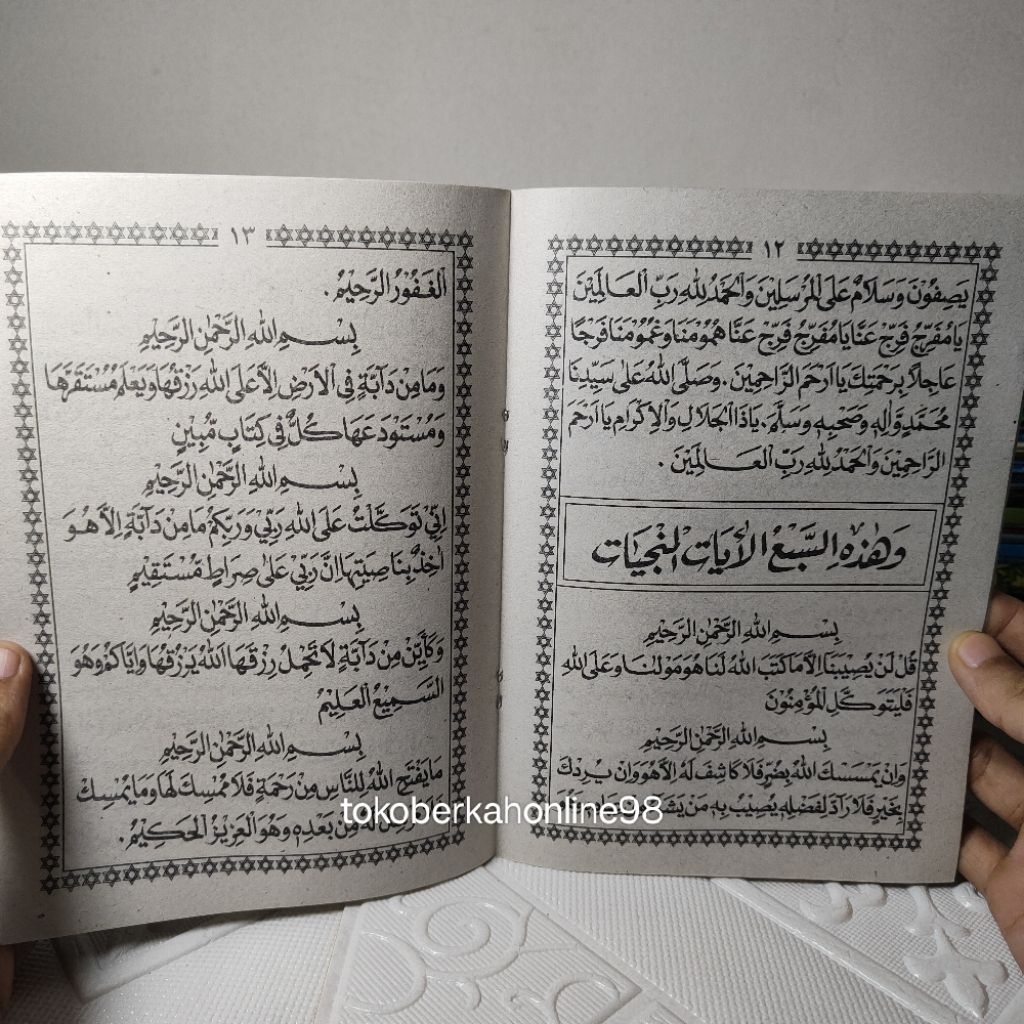 ١٢
يَصِفُوْنَ وَسَلَامٌ عَلَى الْمُرْسَلِيْنَ وَالْحَمْدُ لِلهِ رَبِّ الْعَالَمِيْنَ
يَا مُفَرِّجُ فَرِّجْ عَنَّا يَا مُفَرِّجُ فَرِّجْ عَنَّا هُمُوْمَنَا وَغُمُوْمَنَا فَرَجًا
عَاجِلًا بِرَحْمَتِكَ يَا اَرْحَمَ الرَّاحِمِيْنَ. وَصَلَّى اللهُ عَلَى سَيِّدِنَا
مُحَمَّدٍ وَّاٰلِهٖ وَصَحْبِهٖ وَسَلَّمَ. يَاذَا الْجَلَالِ وَالْاِكْرَامِ يَا اَرْحَمَ
الرَّاحِمِيْنَ وَالْحَمْدُ لِلهِ رَبِّ الْعَالَمِيْنَ.
وَهٰذِهِ السَّبْعُ الْأٰيَاتِ الْمُنْجِيَاتِ
بِسْمِ اللهِ الرَّحْمٰنِ الرَّحِيْمِ
قُلْ لَنْ يُصِيْبَنَا اِلَّا مَا كَتَبَ اللهُ لَنَا هُوَ مَوْلٰنَا وَعَلَى اللهِ
فَلْيَتَوَكَّلِ الْمُؤْمِنُوْنَ
بِسْمِ اللهِ الرَّحْمٰنِ الرَّحِيْمِ
وَاِنْ يَمْسَسْكَ اللهُ بِضُرٍّ فَلَا كَاشِفَ لَهُ اِلَّا هُوَ وَاِنْ يُرِدْكَ
بِخَيْرٍ فَلَا رَآدَّ لِفَضْلِهٖ يُصِيْبُ بِهٖ مَنْ يَشَآءُ
١٣
اَلْغَفُوْرُ الرَّحِيْمُ.
بِسْمِ اللهِ الرَّحْمٰنِ الرَّحِيْمِ
وَمَا مِنْ دَآبَّةٍ فِى الْاَرْضِ اِلَّا عَلَى اللهِ رِزْقُهَا وَيَعْلَمُ مُسْتَقَرَّهَا
وَمُسْتَوْدَعَهَا كُلٌّ فِى كِتَابٍ مُّبِيْنٍ
بِسْمِ اللهِ الرَّحْمٰنِ الرَّحِيْمِ
اِنِّي تَوَكَّلْتُ عَلَى اللهِ رَبِّيْ وَرَبِّكُمْ مَا مِنْ دَآبَّةٍ اِلَّا هُوَ
اٰخِذٌ بِنَاصِيَتِهَا اِنَّ رَبِّيْ عَلَى صِرَاطٍ مُسْتَقِيْمٍ
بِسْمِ اللهِ الرَّحْمٰنِ الرَّحِيْمِ
وَكَأَيِّنْ مِنْ دَآبَّةٍ لَا تَحْمِلُ رِزْقَهَا اللهُ يَرْزُقُهَا وَاِيَّاكُمْ وَهُوَ
السَّمِيْعُ الْعَلِيْمُ
بِسْمِ اللهِ الرَّحْمٰنِ الرَّحِيْمِ
مَا يَفْتَحِ اللهُ لِلنَّاسِ مِنْ رَحْمَةٍ فَلَا مُمْسِكَ لَهَا وَمَا يُمْسِكْ
لَهٗ مِنْ بَعْدِهٖ وَهُوَ الْعَزِيْزُ الْحَكِيْمُ.
tokoberkahonline98